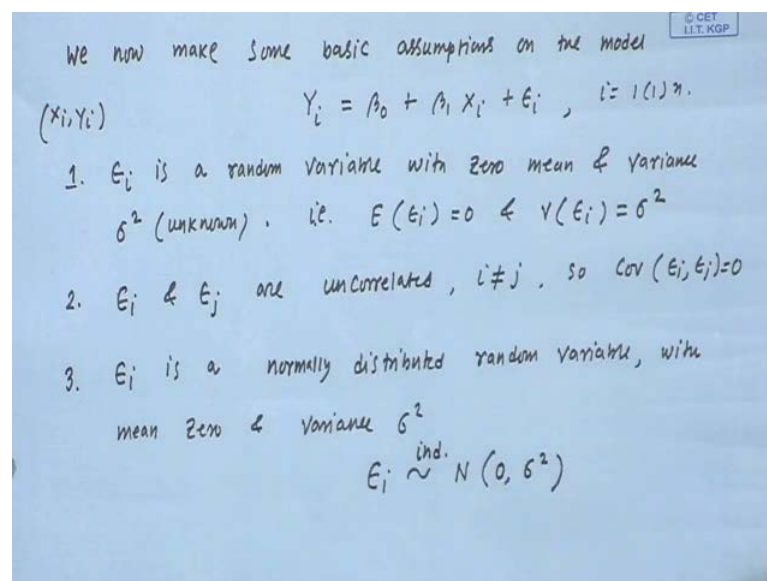 © CET
I.I.T. KGP
We now make some basic assumptions on the model
(Xi, Yi) Yi = β0 + β1 Xi + ϵi , i = 1(1)n.
1. ϵi is a random variable with zero mean & variance
σ² (unknown) . i.e. E(ϵi) = 0 & V(ϵi) = σ²
2. ϵi & ϵj are uncorrelated , i ≠ j . so Cov(ϵi, ϵj)=0
3. ϵi is a normally distributed random variable, with
mean zero & variance σ²
ϵi ind. ~ N(0, σ²)